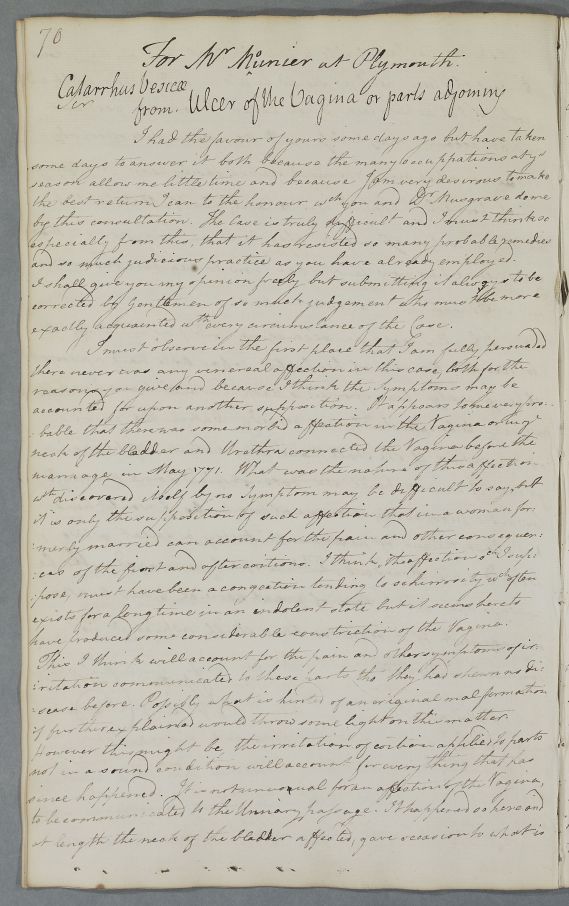 70
For Mr Munier at Plymouth.
Catarrhus Vesicæ
from Ulcer of the Vagina or parts adjoining
Sir
I had the favour of yours some days ago but have taken
some days to answer it both because the many occupations of ys
season allow me little time and because I am very desirous to make
the best return I can to the honour wch you and Dr Musgrave done
by this consultation. The Case is truly difficult and I must think so
especially from this, that it has resisted so many probable remedies
and so much judicious practice as you have already employed.
I shall give you my opinion freely but submitting it always to be
corrected by Gentlemen of so much judgement who must be more
exactly acquainted wth every circumstance of the Case.
I must observe in the first place that I am fully persuaded
there never was any venereal affection in this case, both for the
reasons you give and because I think the symptoms may be
accounted for upon another supposition. It appears to me very pro=
=bable that there was some morbid affection in the Vagina or in ye
neck of the bladder and Urethra connected the Vagina before the
marriage in May 1771. What was the nature of this affection
wch discovered itself by no symptom may be difficult to say, but
it is only the supposition of such affection that in a woman for=
=merly married can account for the pain and other consequen=
=ces of the first and after coitions. I think, the affection wch I sup=
=pose, must have been a congestion tending to schirrosity wch often
exists for a long time in an indolent state but it seems here to
have produced some considerable constriction of the Vagina.
This I think will account for the pain and other symptoms of ir=
=ritation communicated to these parts tho they had shewn no di=
=sease before. Possibly what is hinted of an original mal formation
if further explained would throw some light on this matter.
However this might be the irritation of coition applied to parts
not in a sound condition will account for every thing that has
since happened. It is not unusual for an affection of the Vagina,
to be communicated to the Urinary passage. It happened so here and
at length the neck of the bladder affected, gave occasion to what is